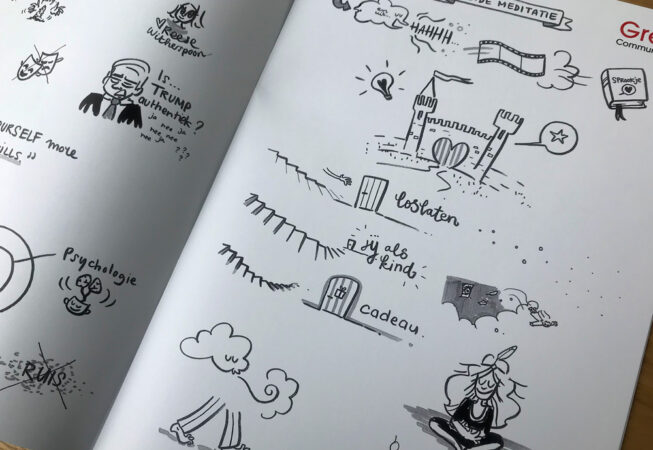 Reese
Witherspoon
Is...
TRUMP
authentiek?
ja nee ja
nee nee
nee ja
???
YOURSELF more
Psychologie
RUIS
DE MEDITATIE
HAHHH
Gre
Commun
SPROOKJE
loslaten
jij als
kind
cadeau